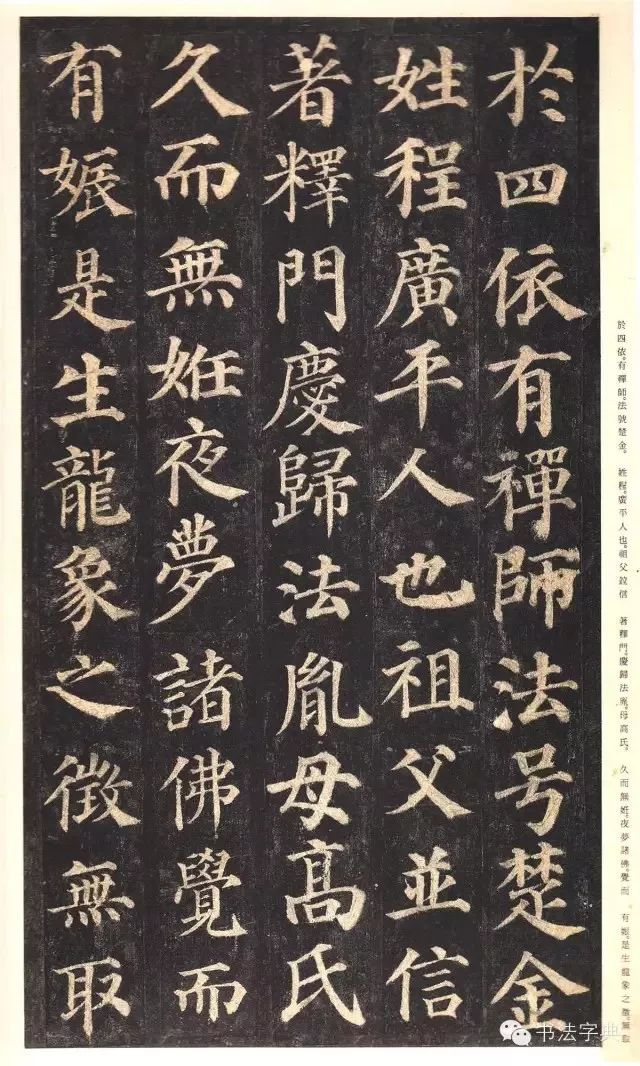 於四依有禪師法号楚金
姓程廣平人也祖父並信
著釋門慶歸法胤母高氏
久而無姙夜夢諸佛覺而
有娠是生龍象之徵無取
於四依。有禪師。法號楚金。 姓程。廣平人也。祖父竝信 著釋門。慶歸法胤。母高氏。 久而無姙。夜夢諸佛。覺而 有娠。是生龍象之徵。無取
书法字典